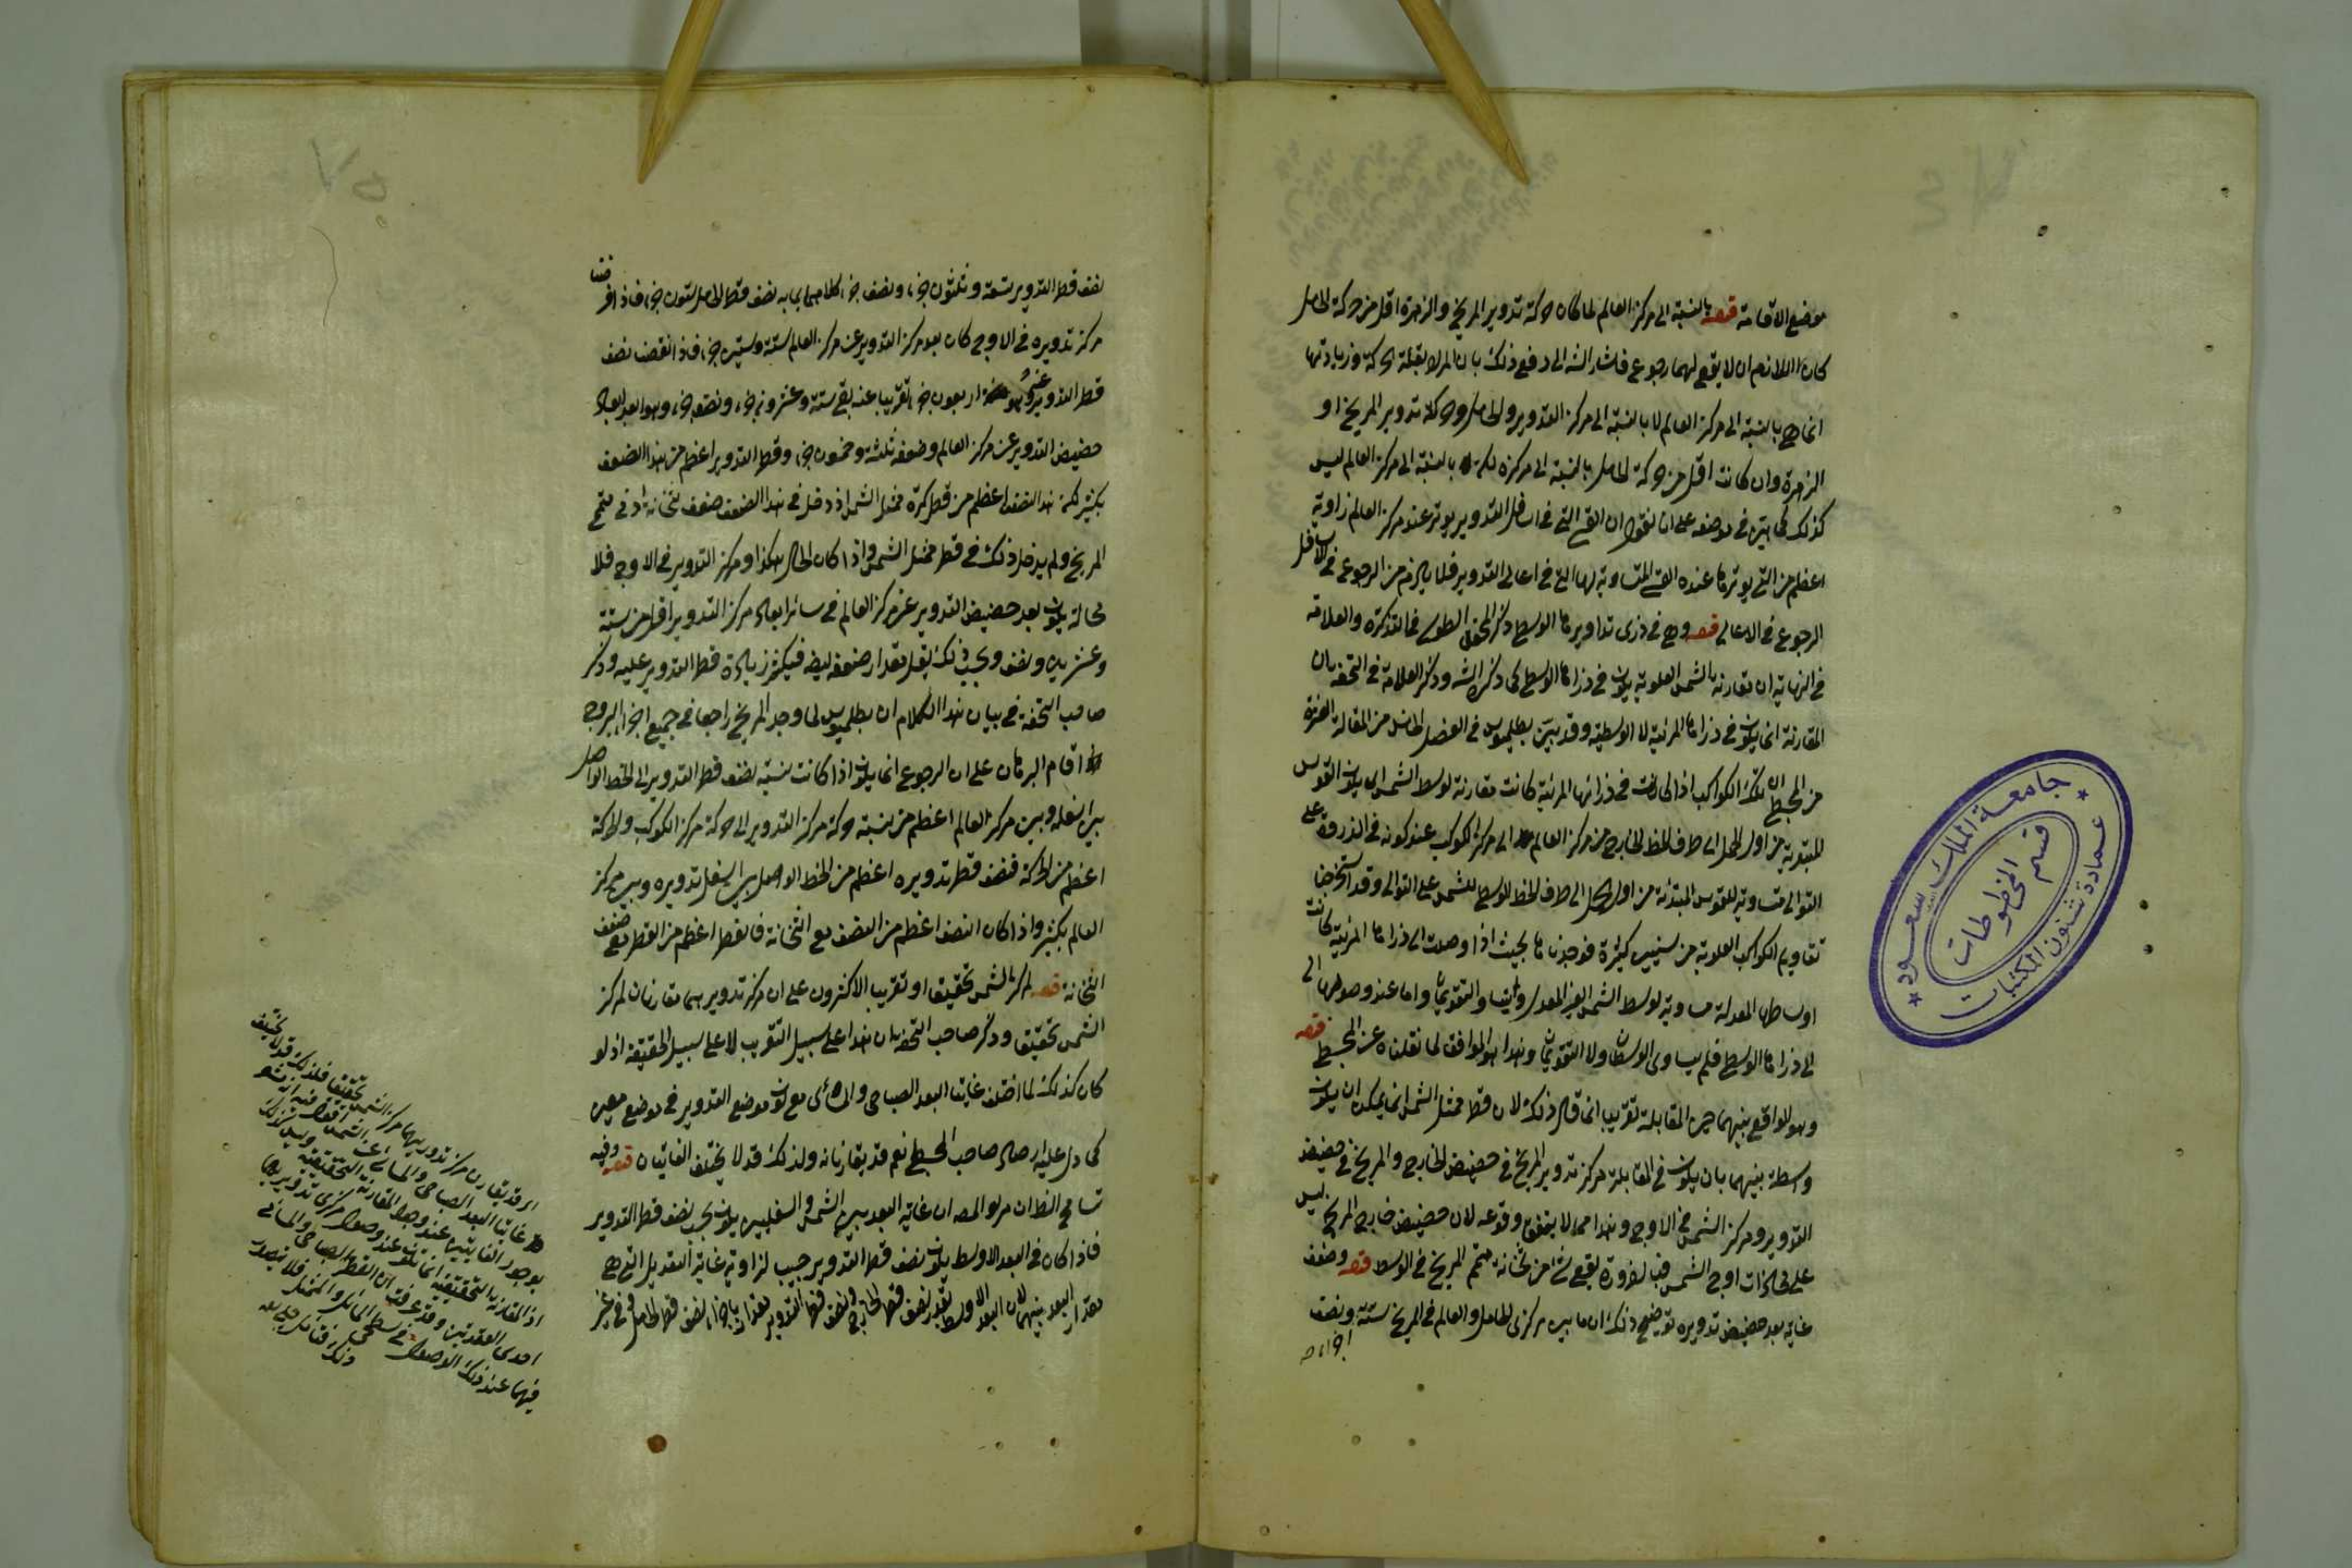 موضع الاقامة قوله بالنسبة الى مركز العالم لما كان حركة تدوير المريخ والزهرة اقل من حركة الحامل
كان اللازم ان لا يقع لهما رجوع فاشار الشه الى دفع ذلك بان المراد بقلة الحركة وزيادتها
انما هى بالنسبة الى مركز العالم لا بالنسبة الى مركز التدوير والحامل وحركة تدوير المريخ او
الزهرة وان كانت اقل من حركة الحامل بالنسبة الى مركزه لكنه بالنسبة الى مركز العالم ليس
كذلك كما تبين فى موضعه على انا نقول ان القسى التى فى اسافل التدوير يوتر عند مركز العالم زاوية
اعظم من التى يوترها عنده القسى المتساوية لها التى فى اعالى التدوير فلا يلزم من الرجوع فى الاسافل
الرجوع فى الاعالى قوله وهى فى ذرى تداويرها الوسطى ذكر المحقق الطوسى فى التذكرة والعلامة
فى النهاية ان مقارنة الشمس العلوية يكون فى ذراها الوسطى كما ذكره الشه وذكر العلامة فى التحفة بان
المقارنة انما يكون فى ذراها المرئية لا الوسطية وقد بين بطلميوس فى الفصل من المقالة
من المجسطى ان تلك الكواكب اذا كانت فى ذراتها المرئية كانت مقارنة لوسط الشمس اى يكون القوس
المبتدئة من اول الحمل الى طرف الخط الخارج من مركز العالم الى مركز الكوكب عند كونه فى الذروة على
التوالى متساوية للقوس المبتدئة من اول الحمل الى طرف الخط الوسطى للشمس على التوالى وقد استخرجنا
تقاويم الكواكب العلوية من سنين كثيرة فوجدناها بحيث اذا وصلت الى ذراها المرئية كانت
اوساطها المعدلة مساوية لوسط الشمس الغير المعدل وايضا والتقويمان واما عند وصولها الى
الى ذراها الوسطى فلم يساوى الوسطان ولا التقويمان وهذا هو الموافق لما نقلناه عن المجسطى قوله
وهو الواقع بينهما حين المقابلة تقريبا انما قال ذلك لان قطر ممثل الشمس انما يمكن ان يكون
واسطة بينهما بان يكون فى المقابلة مركز تدوير المريخ فى حضيض الخارج والمريخ فى حضيض
التدوير ومركز الشمس فى الاوج وهذا مما لا يتفق وقوعه لان حضيض خارج المريخ ليس
على محاذات اوج الشمس فبالضرورة يقع شئ من ثخانة متمم المريخ فى الوسط قوله وضعف
غاية بعد حضيض تدويره توضيح ذلك ان ما بين مركزى الحامل والعالم فى المريخ ستة ونصف
اجزاء
نصف قطر التدوير تسعة وثلثون جزء ونصف جزء كلاهما بما به نصف قطر الحامل ستون جزء فاذا فرضنا
مركز تدويره فى الاوج كان بعد مركز التدوير عن مركز العالم ستة وستين جزء فاذا نقصنا نصف
قطر التدوير وهو اربعون جزء تقريبا عنه بقى ستة وعشرون جزء ونصف جزء وهو ابعد ابعاد
حضيض التدوير عن مركز العالم وضعفه ثلثة وخمسون جزء وقطر التدوير اعظم من هذا الضعف
بكثير لكن هذا الضعف اعظم من قطر كرة ممثل الشمس اذ دخل فى هذا الضعف ضعف ثخانة ادنى متمم
المريخ ولم يدخل ذلك فى قطر ممثل الشمس واذا كان الحال هكذا ومركز التدوير فى الاوج فلا
محالة يكون بعد حضيض التدوير عن مركز العالم فى سائر ابعاد مركز التدوير اقل من ستة
وعشرين ونصف وبحسب ذلك يقل مقدار ضعفه ايضا فيكثر زيادة قطر التدوير عليه وذكر
صاحب التحفة فى بيان هذا الكلام ان بطلميوس لما وجد المريخ راجعا فى جميع اجزاء البروج
اقام البرهان على ان الرجوع انما يكون اذا كانت نسبة نصف قطر التدوير الى الخط الواصل
بين اسفله وبين مركز العالم اعظم من نسبة حركة مركز التدوير الى حركة مركز الكوكب والحركة
اعظم من الحركة فنصف قطر تدويره اعظم من الخط الواصل بين اسفل تدويره وبين مركز
العالم بكثير واذا كان النصف اعظم من النصف مع الثخانة فالقطر اعظم من القطر مع ضعف
الثخانة قوله لمركز الشمس تحقيقا او تقريبا الاكثرون على ان مركز تدويرهما مقارنان لمركز
الشمس تحقيقا وذكر صاحب التحفة بان هذا على سبيل التقريب لا على سبيل الحقيقة اذ لو
كان كذلك لما اختلف غايتا البعد الصباحى والمسائى مع كون موضع التدوير فى موضع معين
كما دل عليه ارصاد صاحب المجسطى نعم قد يقارنانه ولذلك قد لا يختلف الغايتان قوله وفيه
تسامح الظ ان مراد المصه ان غاية البعد بين الشمس والسفليين يكون بحسب نصف قطر التدوير
فاذا كان فى البعد الاوسط يكون نصف قطر التدوير جيب لزاوية غاية التعديل التى هى
مقدار البعد بينهما لان البعد الاوسط بقدر نصف قطر الخارج ونصف قطر التدوير مقدار باجزاء نصف قطر الحامل وفى غير
اى قد يقارن مركز تدويريهما مركز الشمس تحقيقا فلذلك قد لا يختلف
غايتا البعد الصباحى والمسائى عن الشمس اقول فيه انه
بوجود الغايتين عند وجود المقارنة التحقيقية وليس كذلك
اذ المقارنة التحقيقية انما تكون عند وصول مركزى تدويريهما
احدى العقدتين وقد عرفت ان القطر الصباحى والمسائى
فيهما عند ذلك الوصول فى سطح المائل والممثل فلا يتصور
ذلك فتأمل
جامعة الملك سعود
قسم المخطوطات
عمادة شئون المكتبات